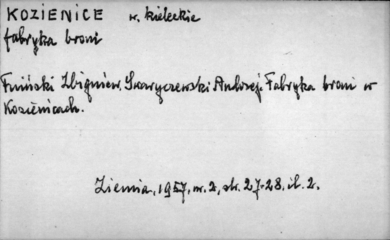 KOZIENICE w. kieleckie
fabryka broni
Zbigniew, Skaryszewski Andrzej. Fabryka broni w
Kozienicach.
Ziemia, 1957, nr. 2, str. 27-28, il. 2.